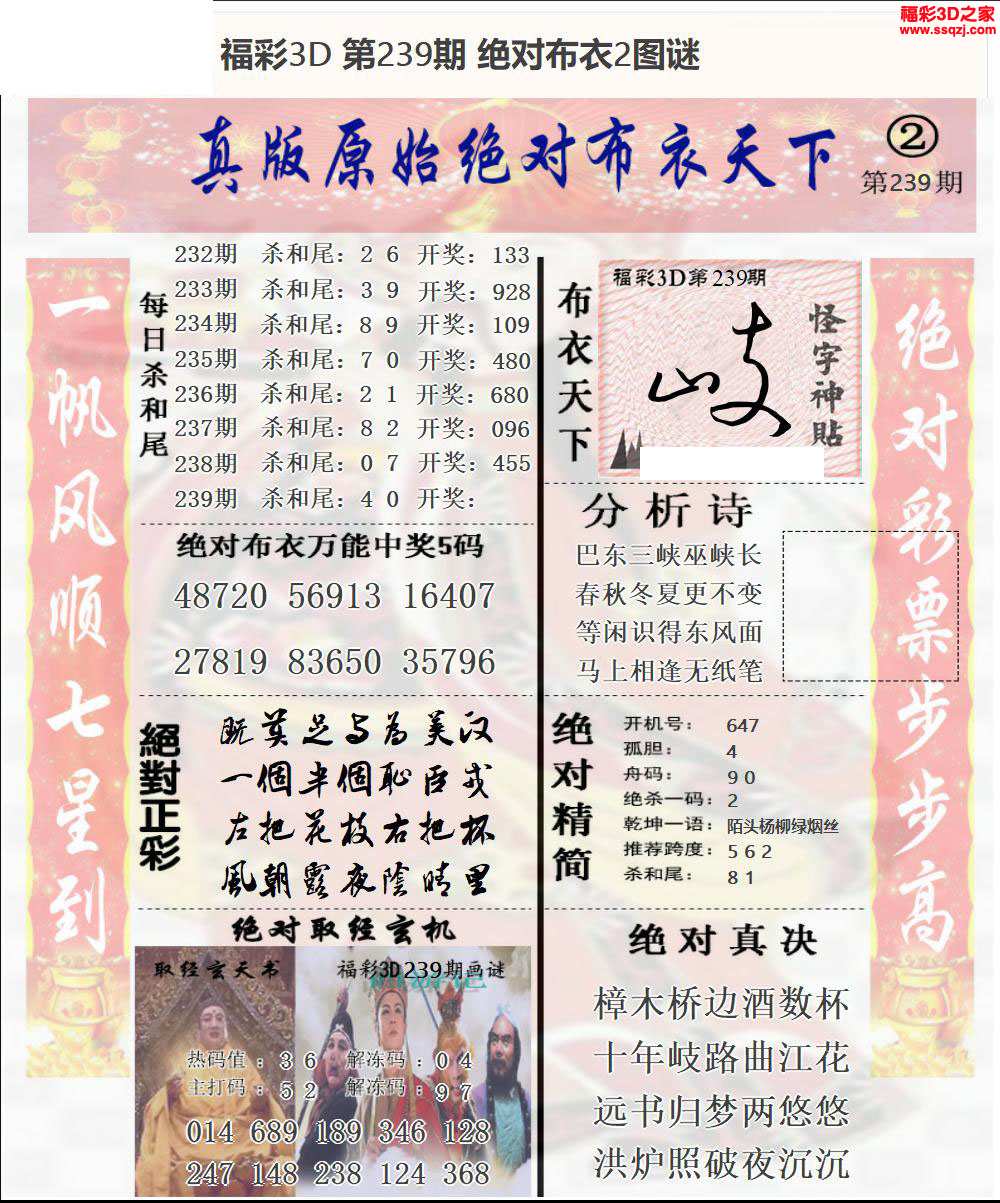 福彩3D之家
www.ssqzj.com
福彩3D 第239期 绝对布衣2图谜
真版原始绝对布衣天下
②
第239期
一帆风顺七星到
每日杀和尾
232期 杀和尾：2 6 开奖：133
233期 杀和尾：3 9 开奖：928
234期 杀和尾：8 9 开奖：109
235期 杀和尾：7 0 开奖：480
236期 杀和尾：2 1 开奖：680
237期 杀和尾：8 2 开奖：096
238期 杀和尾：0 7 开奖：455
239期 杀和尾：4 0 开奖：
绝对布衣万能中奖5码
48720 56913 16407
27819 83650 35796
絕對正彩
既莫足与为美汉
一個半個恥臣戎
左把花枝右把杯
風朝露夜陰晴里
绝对取经玄机
取经玄天书
福彩3D239期画谜
热码值：3 6 解冻码：0 4
主打码：5 2 解冻码：9 7
014 689 189 346 128
247 148 238 124 368
布衣天下
福彩3D第239期
岐
怪字神贴
分析诗
巴东三峡巫峡长
春秋冬夏更不变
等闲识得东风面
马上相逢无纸笔
绝对精简
开机号：647
孤胆：4
舟码：9 0
绝杀一码：2
乾坤一语：陌头杨柳绿烟丝
推荐跨度：5 6 2
杀和尾：8 1
绝对真决
樟木桥边酒数杯
十年岐路曲江花
远书归梦两悠悠
洪炉照破夜沉沉
绝对彩票步步高